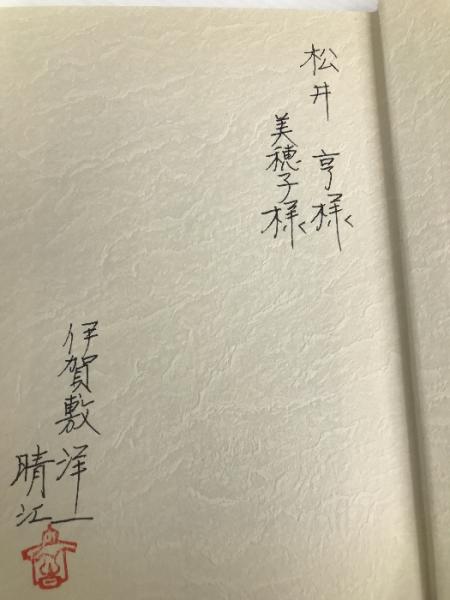 松井 亨様
美穂子様
伊賀敷 洋一
晴江